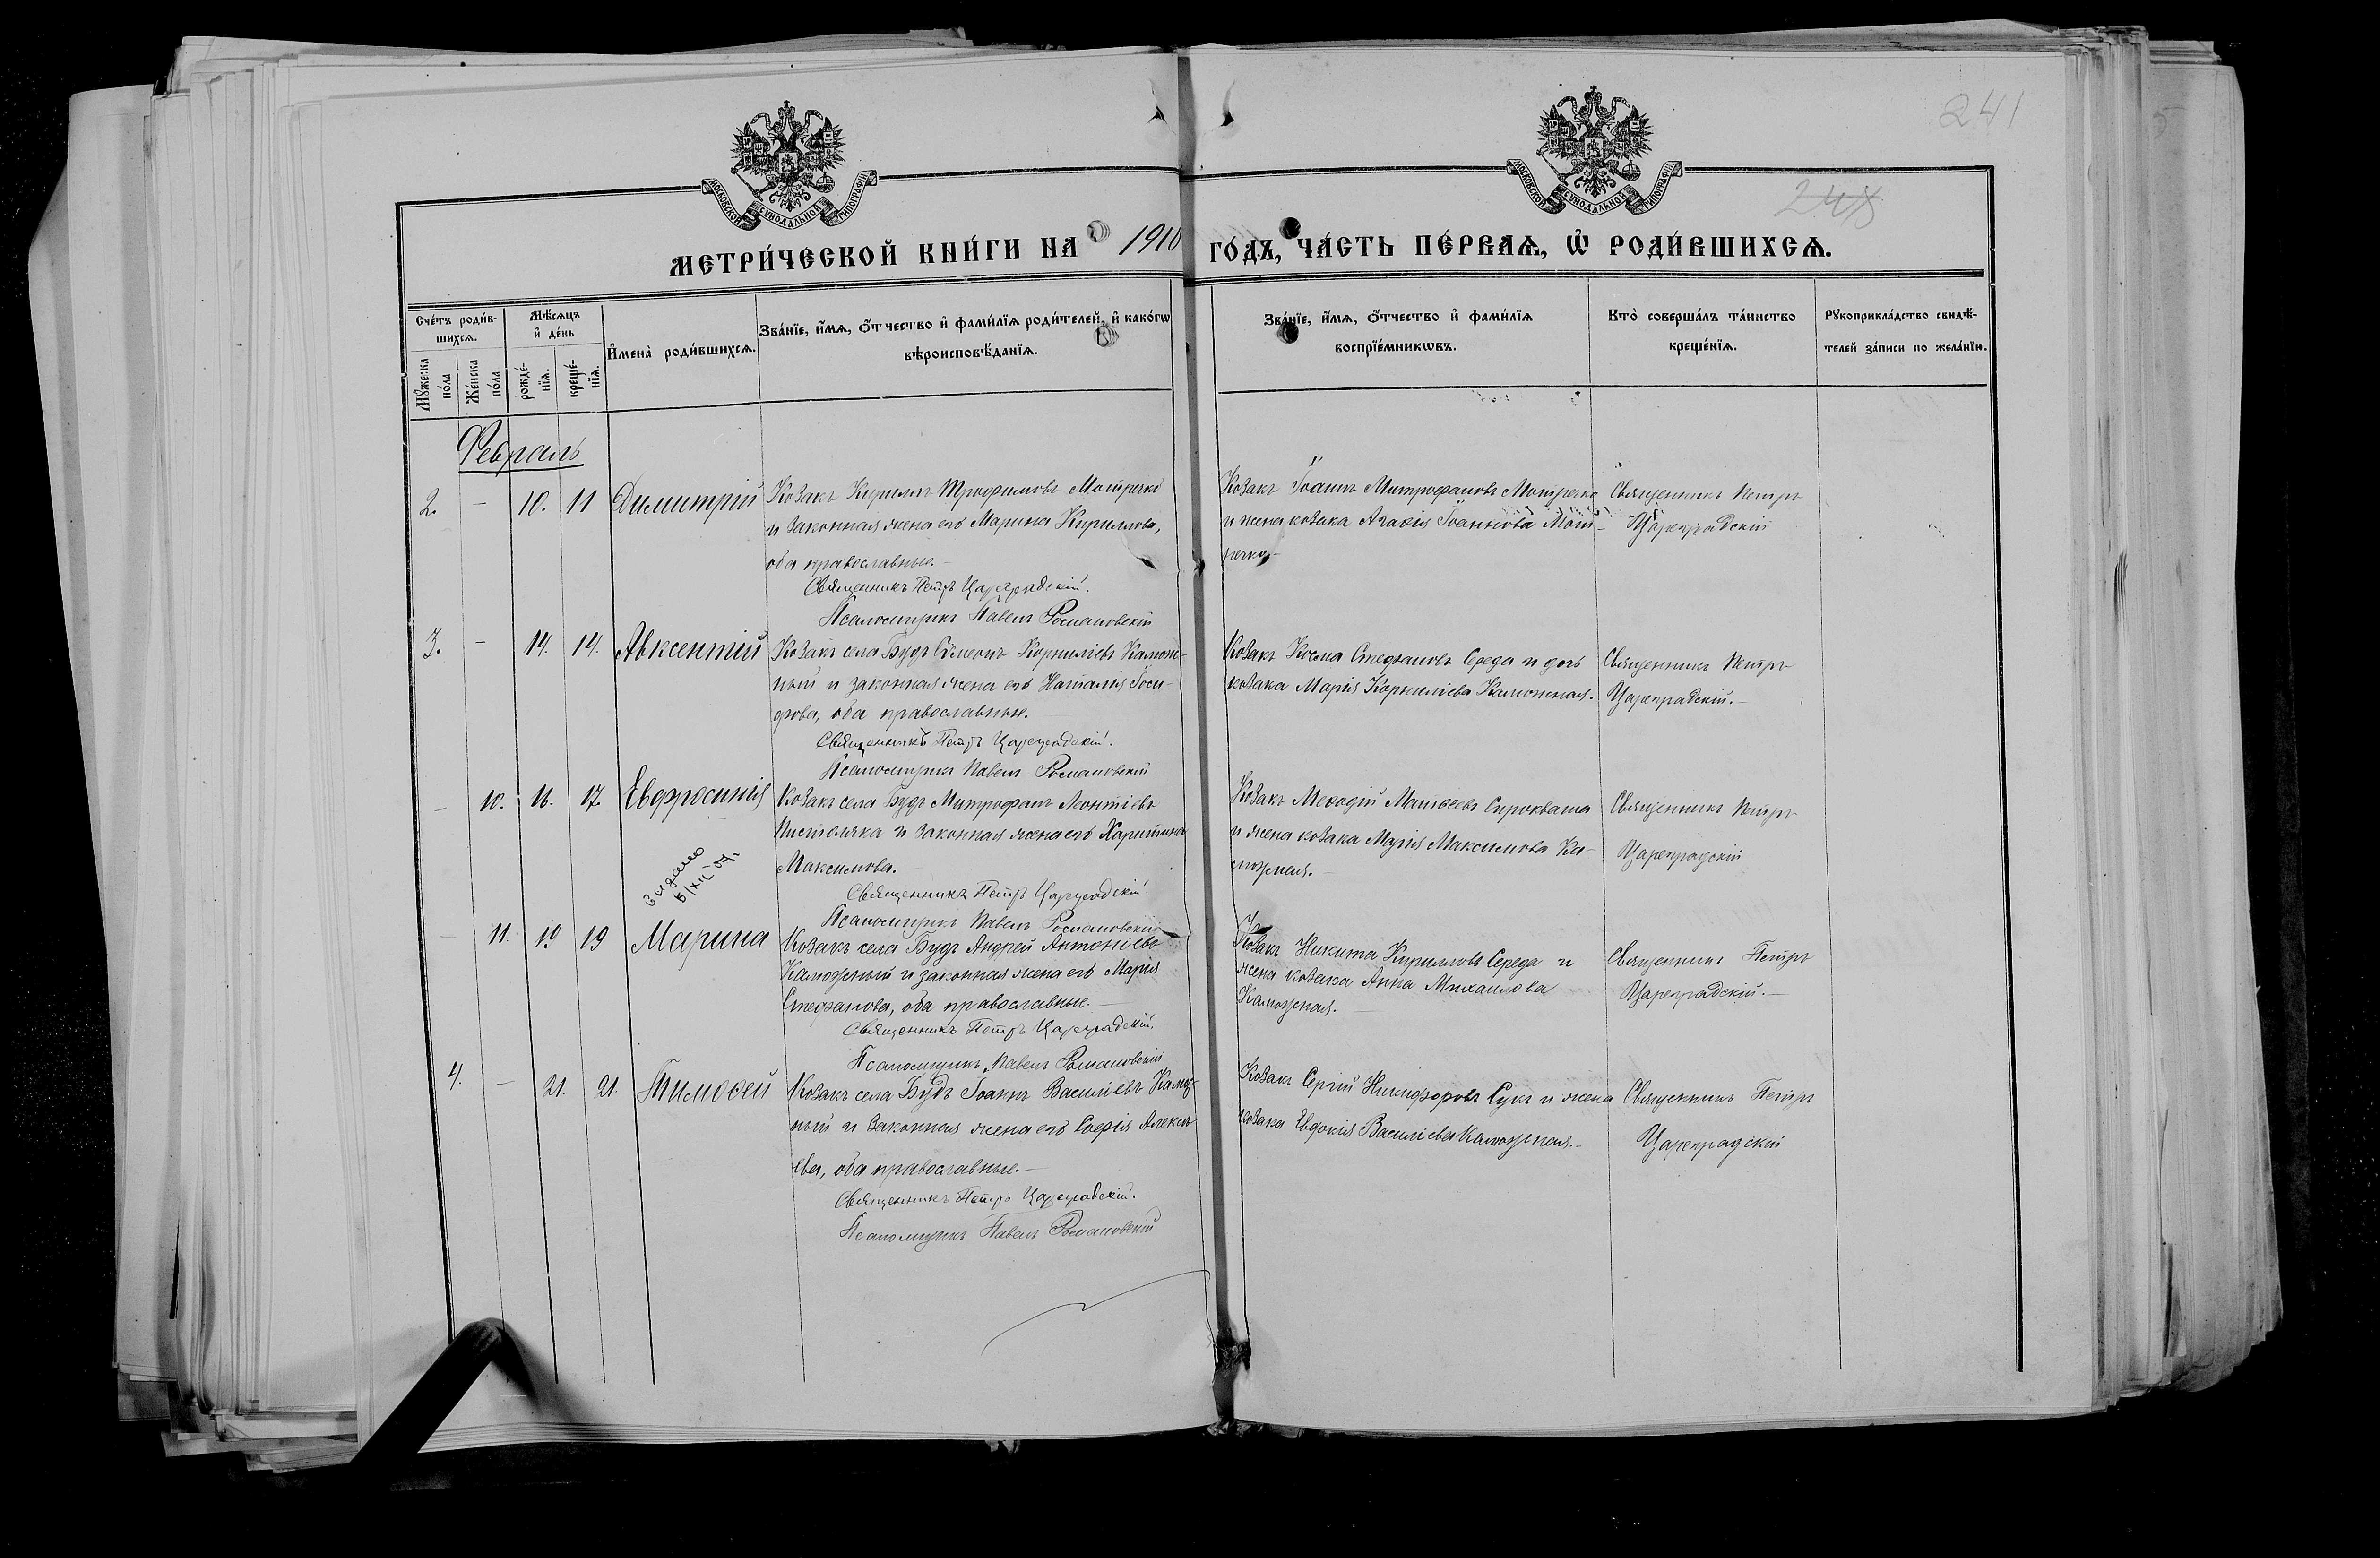 241
248
МОСКОВСКОЙ СУНОДАЛЬНОЙ ТИПОГРАФІИ
МОСКОВСКОЙ СУНОДАЛЬНОЙ ТИПОГРАФІИ
МЕТРИ́ЧЕСКОЙ КНИ́ГИ НА 1910 ГО́ДЪ, ЧА́СТЬ ПЕ́РВАѦ, Ѡ҆ РОДИ́ВШИХСѦ.
Сче́тъ роди́в-
шихсѧ.
Мꙋ́жеска
по́ла
Же́нска
по́ла
Мѣ́сѧцъ
и҆ де́нь
рожде́-
нїѧ.
креще́-
нїѧ.
И҆мена̀ роди́вшихсѧ.
Зва́нїе, и҆́мѧ, ѻ҆́тчество и҆ фами́лїѧ роди́телей, и҆ како́гѡ
вѣроисповѣ́данїѧ.
Зва́нїе, и҆́мѧ, ѻ҆́тчество и҆ фами́лїѧ
воспрїе́мникѡвъ.
Кто̀ соверша́лъ та́инство
креще́нїѧ.
Рꙋкоприкла́дство свидѣ́-
телей за́писи по жела́нїю.
Февраль
2. — 10. 11 Димитрій
Козакъ Кириллъ Трофимовъ Мотречко
и законная жена его Марина Кирилова,
оба православные.—
Священникъ Петръ Цареградскій.
Псаломщикъ Павелъ Романовскій
Козакъ Іоаннъ Митрофановъ Мотречко
и жена козака Агафія Іоаннова Мот-
речко
Священникъ Петръ
Цареградскій
3. — 14. 14. Авксентій
Козакъ села Будъ Сѵмеонъ Корниліевъ Камож-
ный и законная жена его Наталія Іоси-
фова, оба православные.—
Священникъ Петръ Цареградскій.
Псаломщикъ Павелъ Романовскій
Козакъ Косма Стефановъ Середа и дочь
козака Марія Корниліева Каможная.
Священникъ Петръ
Цареградскій.—
— 10. 16. 17. Евфросинія
Козакъ села Будъ Митрофанъ Леонтіевъ
и законная жена его Харитина
Максимова.—
Священникъ Петръ Цареградскій.
Псаломщикъ Павелъ Романовскій
Козакъ Меѳодій Матѳеевъ Сыроваша
и жена козака Марія Максимова Ка-
можная.—
Священникъ Петръ
Цареградскій
видано
— 11. 19 19 Марина
Козакъ села Будъ Андрей Антоніевъ
Каможный и законная жена его Марія
Стефанова, оба православные.—
Священникъ Петръ Цареградскій.
Псаломщикъ Павелъ Романовскій
Козакъ Никита Кирилловъ Середа и
жена козака Анна Михаилова
Каможная.—
Священникъ Петръ
Цареградскій.—
4. — 21. 21. Тимоѳей
Козакъ села Будъ Іоаннъ Василіевъ Камож-
ный и законная жена его Софія Алексѣ-
ева, оба православные.—
Священникъ Петръ Цареградскій.
Псаломщикъ Павелъ Романовскій
Козакъ Сергій Никифоровъ Сукъ и жена
козака Евдокія Василіева Каможная.—
Священникъ Петръ
Цареградскій